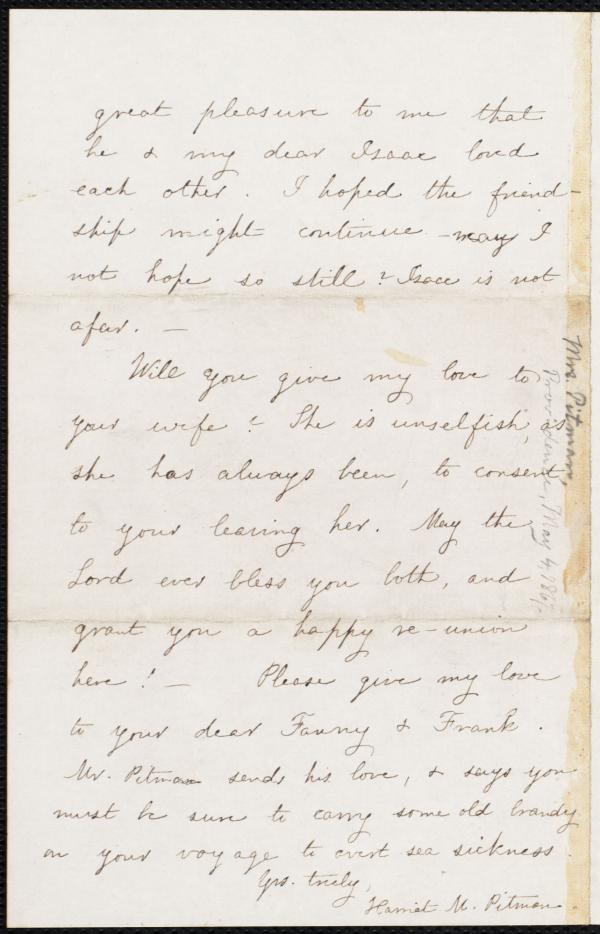 great pleasure to me that
he & my dear Isaac loved
each other. I hoped the friend-
ship might continue - may I
not hope so still? Isaac is not
afar. —
Will you give my love to
your wife? She is unselfish, as
she has always been, to consent
to your leaving her. May the
Lord ever bless you both, and
grant you a happy re-union
here! — Please give my love
to your dear Fanny & Frank.
Mr. Pitman sends his love, & says you
must be sure to carry some old brandy
on your voyage to avert sea sickness.
Yrs. truly,
Harriet M. Pitman.
Mrs. Pitman,
Providence, May 4, 1867.